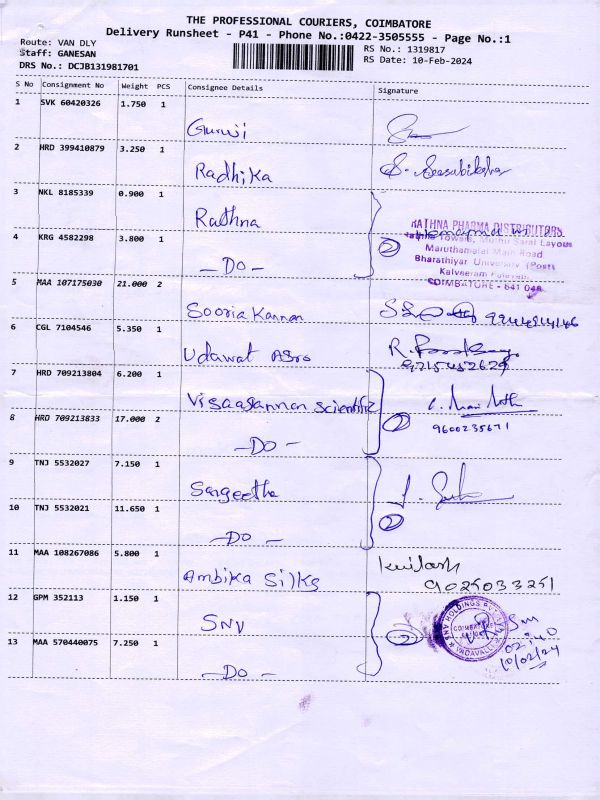 THE PROFESSIONAL COURIERS, COIMBATORE
Delivery Runsheet - P41 - Phone No.:0422-3505555 - Page No.:1
Route: VAN DLY
RS No.: 1319817
Staff: GANESAN
RS Date: 10-Feb-2024
DRS No.: DCJB131981701
S No Consignment No Weight PCS Consignee Details Signature
1 SVK 60420326 1.750 1
2 HRD 399410879 3.250 1 Radhika
3 NKL 8185339 0.900 1 Rathna
RATHNA PHARMA DISTRIBUTORS
4 KRG 4582298 3.800 1 - DO - 2
Maruthamalai Main Road
Bharathiyar University (Post)
COIMBATORE - 641 046
5 MAA 107175030 21.000 2 Sooria Kannan
6 CGL 7104546 5.350 1 Udawat Agro
9715452629
7 HRD 709213804 6.200 1 Visaagannan Scientific
8 HRD 709213833 17.000 2 - DO - 2
9600235671
9 TNJ 5532027 7.150 1 Sangeetha
10 TNJ 5532021 11.650 1 - DO - 2
11 MAA 108267086 5.800 1 Ambika Silks
9025033251
12 GPM 352113 1.150 1 SNV 2
13 MAA 570440075 7.250 1 - DO -
10/02/24